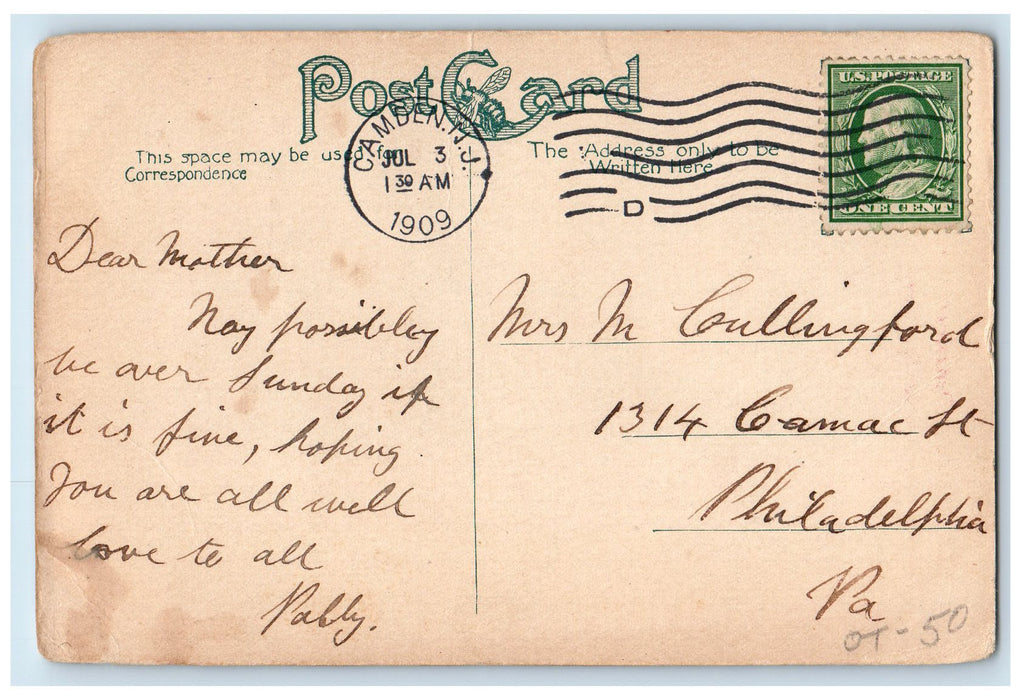 Post Card
CAMDEN. N.J.
JUL 3
1 30 AM
1909
D
U.S. POSTAGE
ONE CENT
This space may be used for
Correspondence
The Address only to be
Written Here
Dear Mother
May possibley
be over Sunday if
it is fine, hoping
you are all well
love to all
Mrs M Cullingford
1314 Camac St
Philadelphia
Pa
OT-50